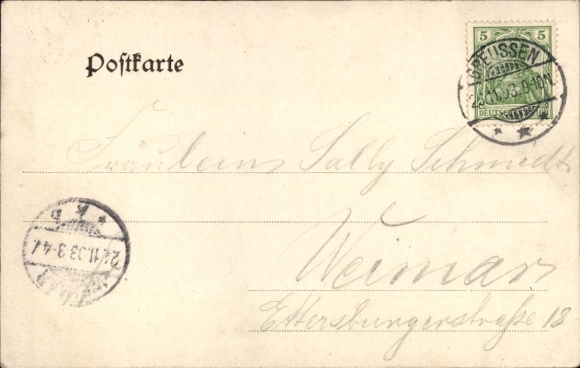 Postkarte
5 5
DEUTSCHES
GREUSSEN
9-10N.
Fräulein Sally Schmidt
Weimar
Ettersburgerstraße 18
WEIMAR
11.03.3-4